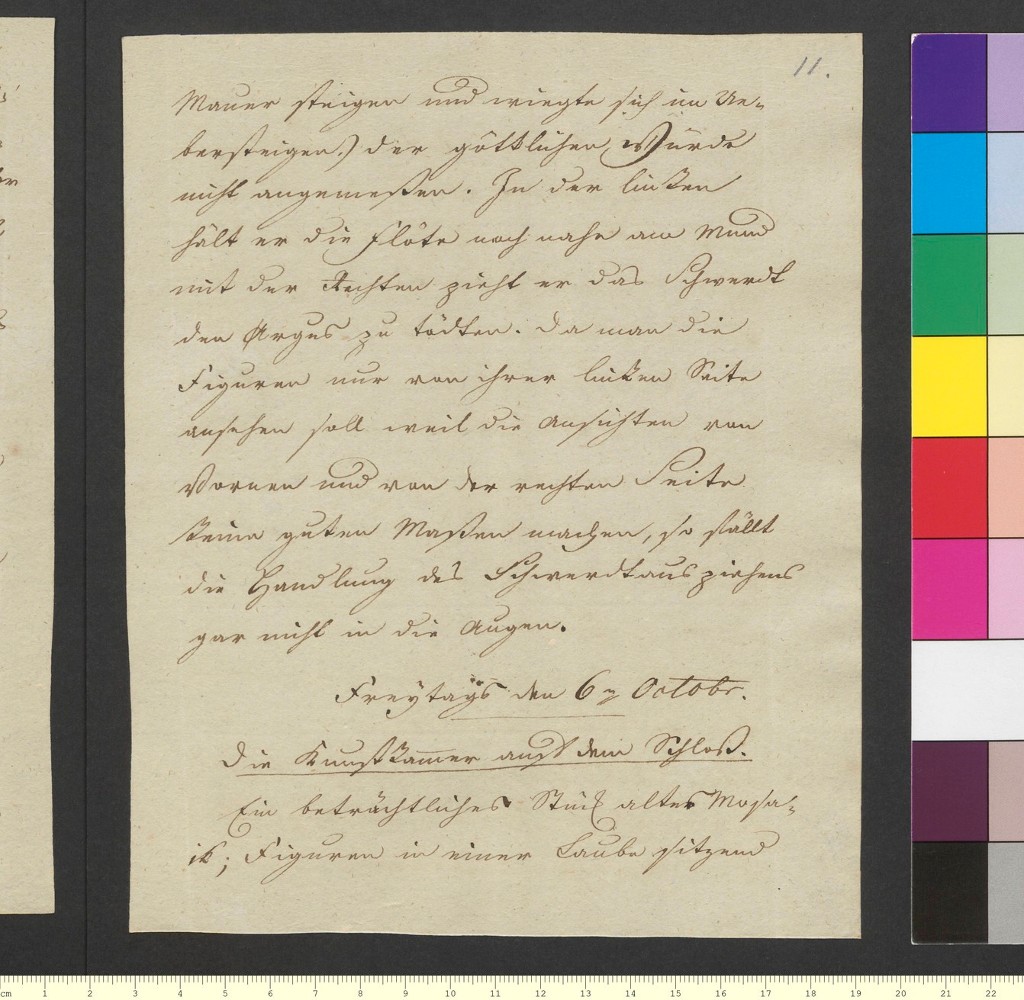 11.
Mauer steigen und wiegte sich im Ue-
bersteigen.) der göttlichen Würde
nicht angemeßen. In der linken
hält er die Flöte noch nahe am Mund
mit der Rechten zieht er das Schwerdt
den Argus zu tödten. Da man die
Figuren nur von ihrer linken Seite
ansehen soll weil die Ansichten von
Vornen und von der rechten Seite
keine guten Maßen machen, so fällt
die Handlung des Schwerdtausziehens
gar nicht in die Augen.
Freytags den 6n Octobr.
Die Kunstkam̄er auf dem Schloß.
Ein beträchtliches Stück altes Mosa-
ik; Figuren in einer Laube sitzend
cm 1 2 3 4 5 6 7 8 9 10 11 12 13 14 15 16 17 18 19 20 21 22